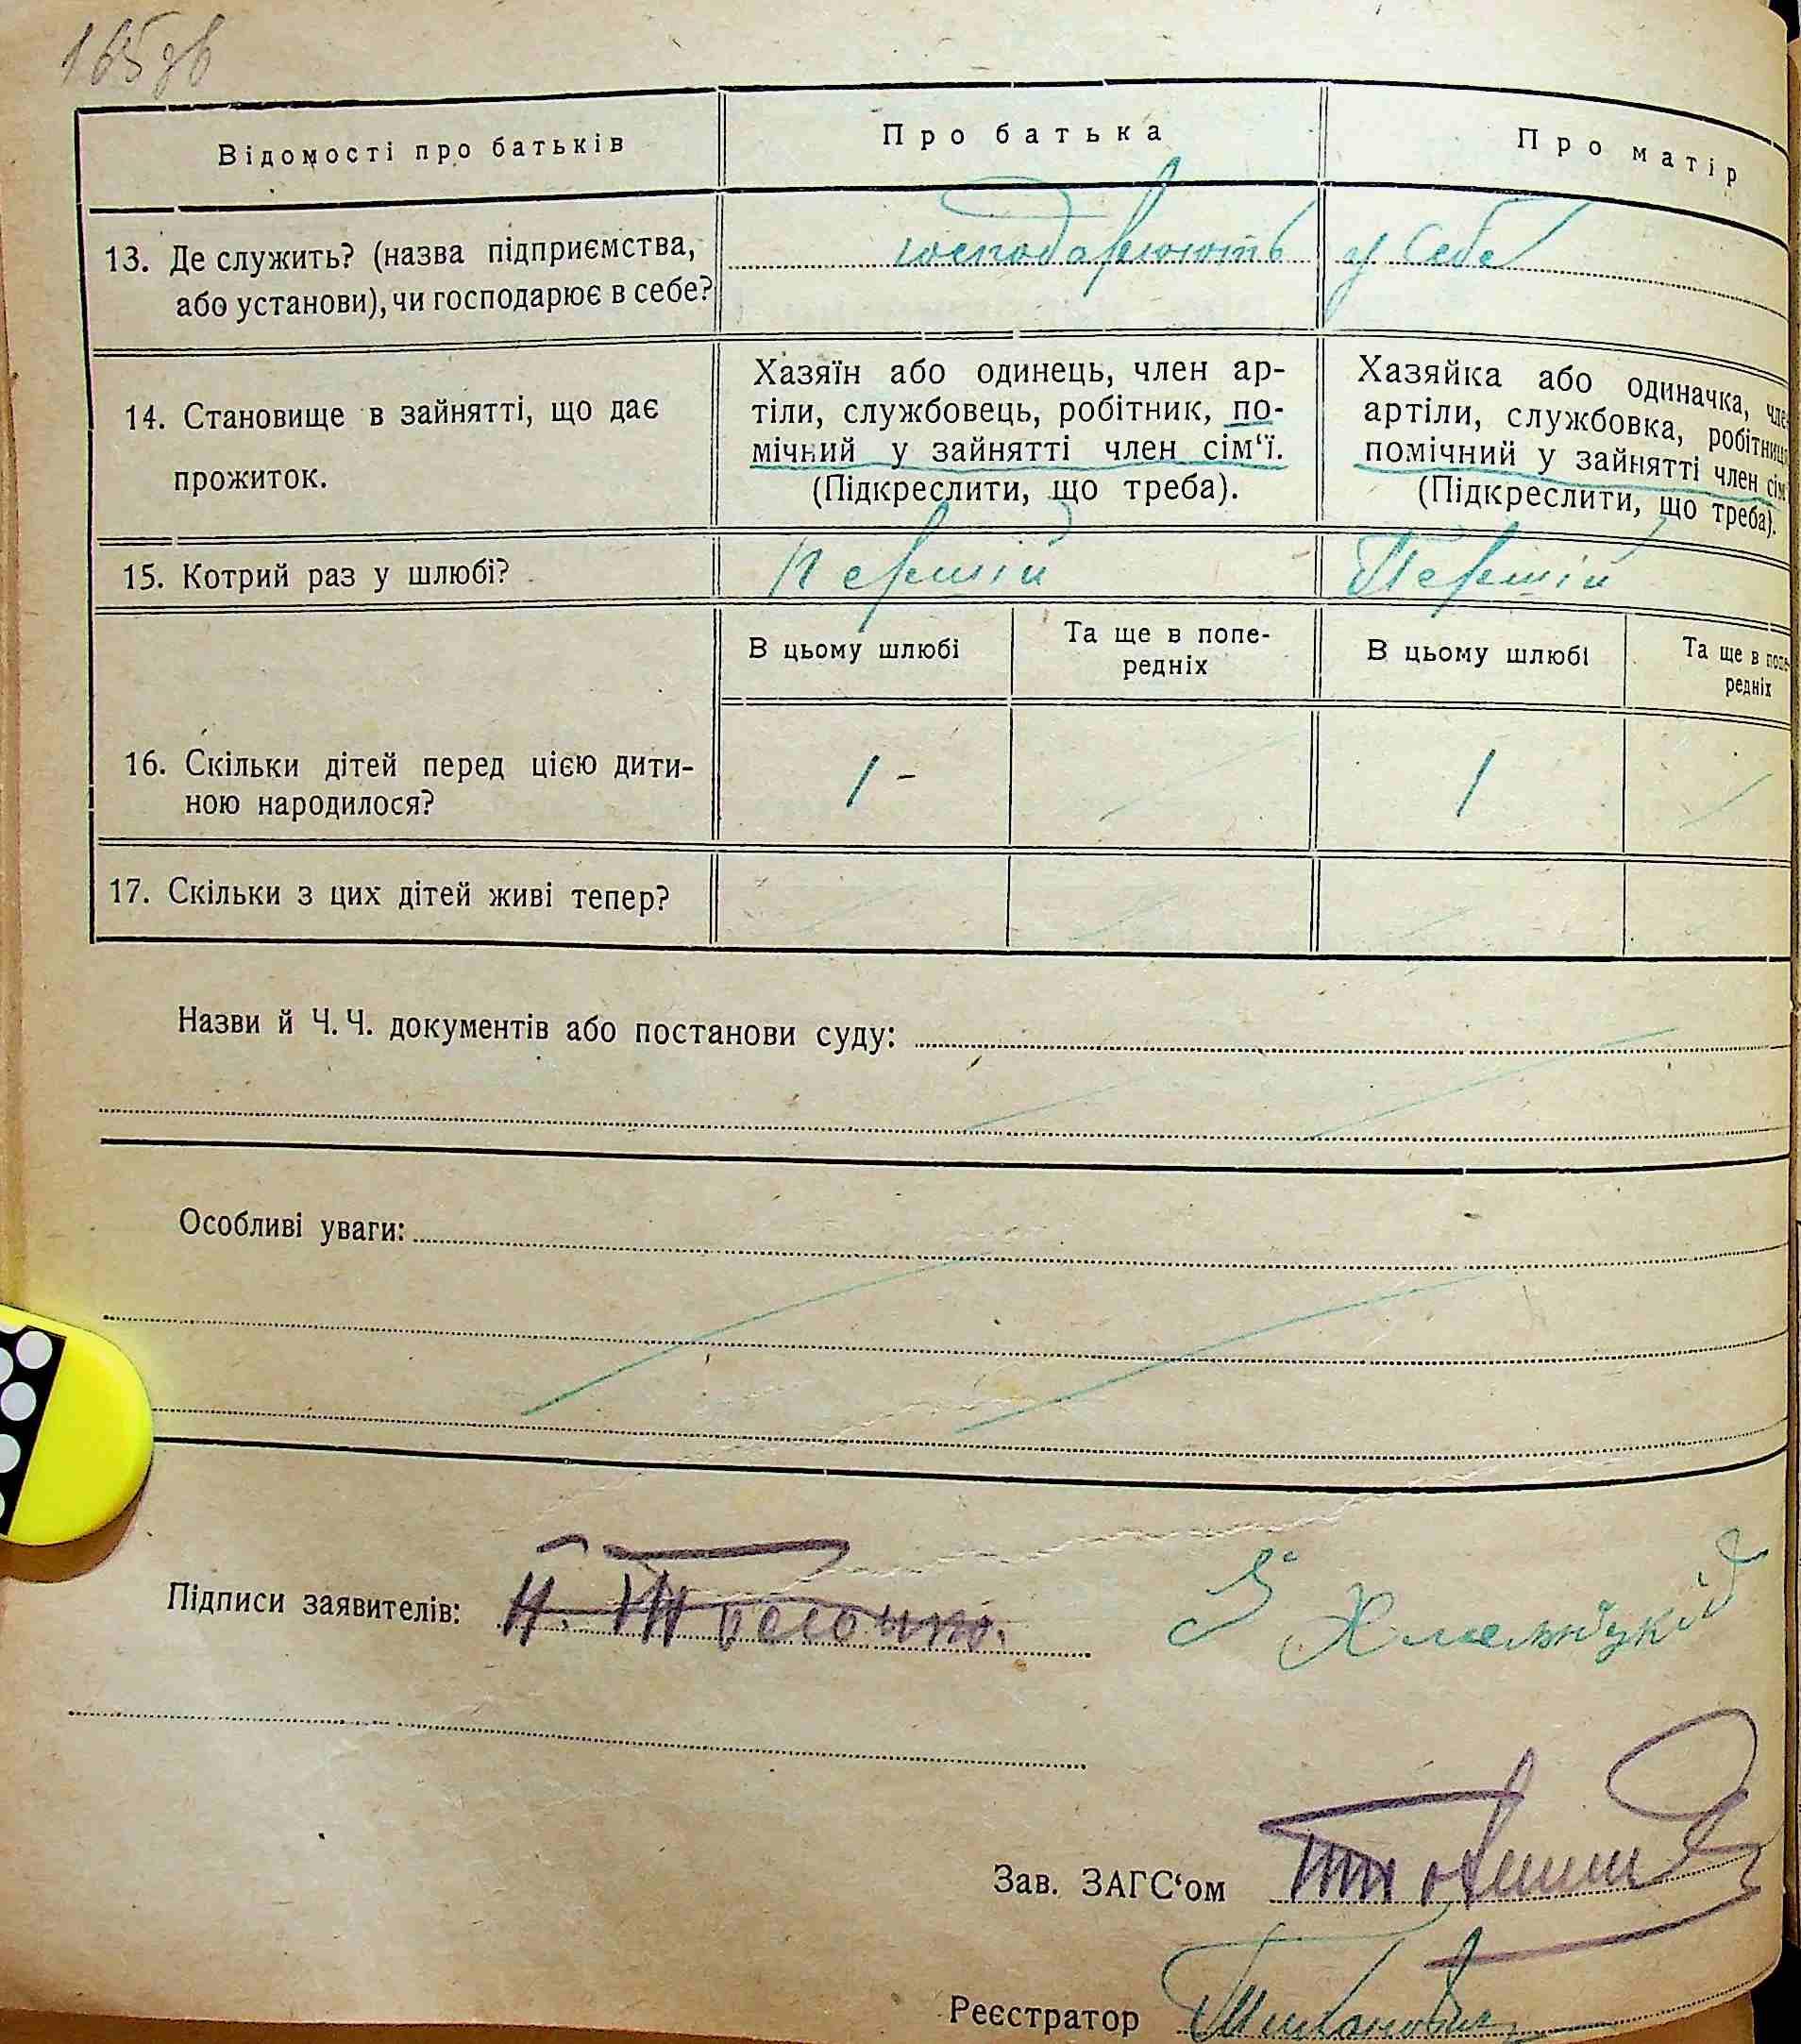 165 зв
Відомості про батьків
Про батька
Про матір
13. Де служить? (назва підприємства,
або установи), чи господарює в себе?
господарюють у себе
14. Становище в зайнятті, що дає
прожиток.
Хазяїн або одинець, член ар-
тіли, службовець, робітник, по-
мічний у зайнятті член сім‘ї.
(Підкреслити, що треба).
Хазяйка або одиначка, чле
артіли, службовка, робітниця
помічний у зайнятті член сім
(Підкреслити, що треба).
15. Котрий раз у шлюбі?
Першій
Першій
В цьому шлюбі
Та ще в попе-
редніх
В цьому шлюбі
Та ще в попе-
редніх
16. Скільки дітей перед цією дити-
ною народилося?
1 -
1
17. Скільки з цих дітей живі тепер?
Назви й Ч. Ч. документів або постанови суду:
Особливі уваги:
Підписи заявителів:
Хмельніцкій
Зав. ЗАГС‘ом
Реєстратор